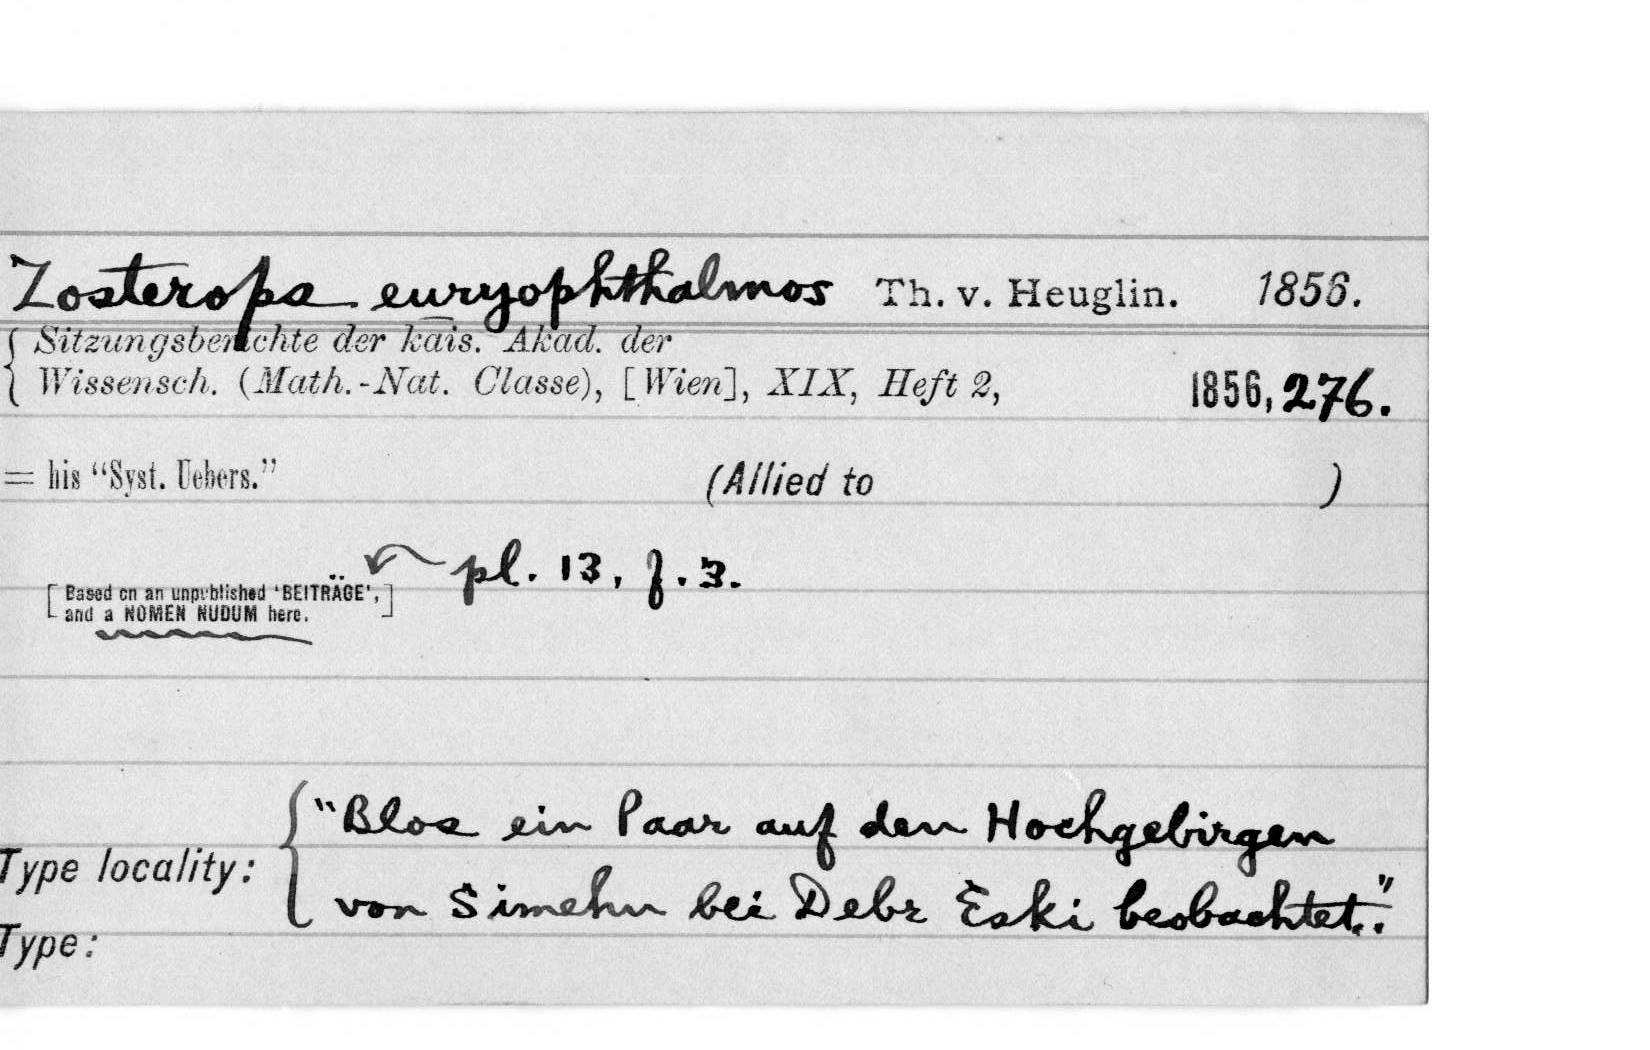 Zosterops euryophthalmos Th. v. Heuglin. 1856.
Sitzungsberichte der kais. Akad. der
Wissensch. (Math.-Nat. Classe), [Wien], XIX, Heft 2, 1856, 276.
= his “Syst. Uebers.” (Allied to )
pl. 13, f. 3.
[Based on an unpublished ‘BEITRÄGE’,
and a NOMEN NUDUM here.]
"Blos ein Paar auf den Hochgebirgen
Type locality:
von Simehn bei Debr Eski beobachtet."
Type: